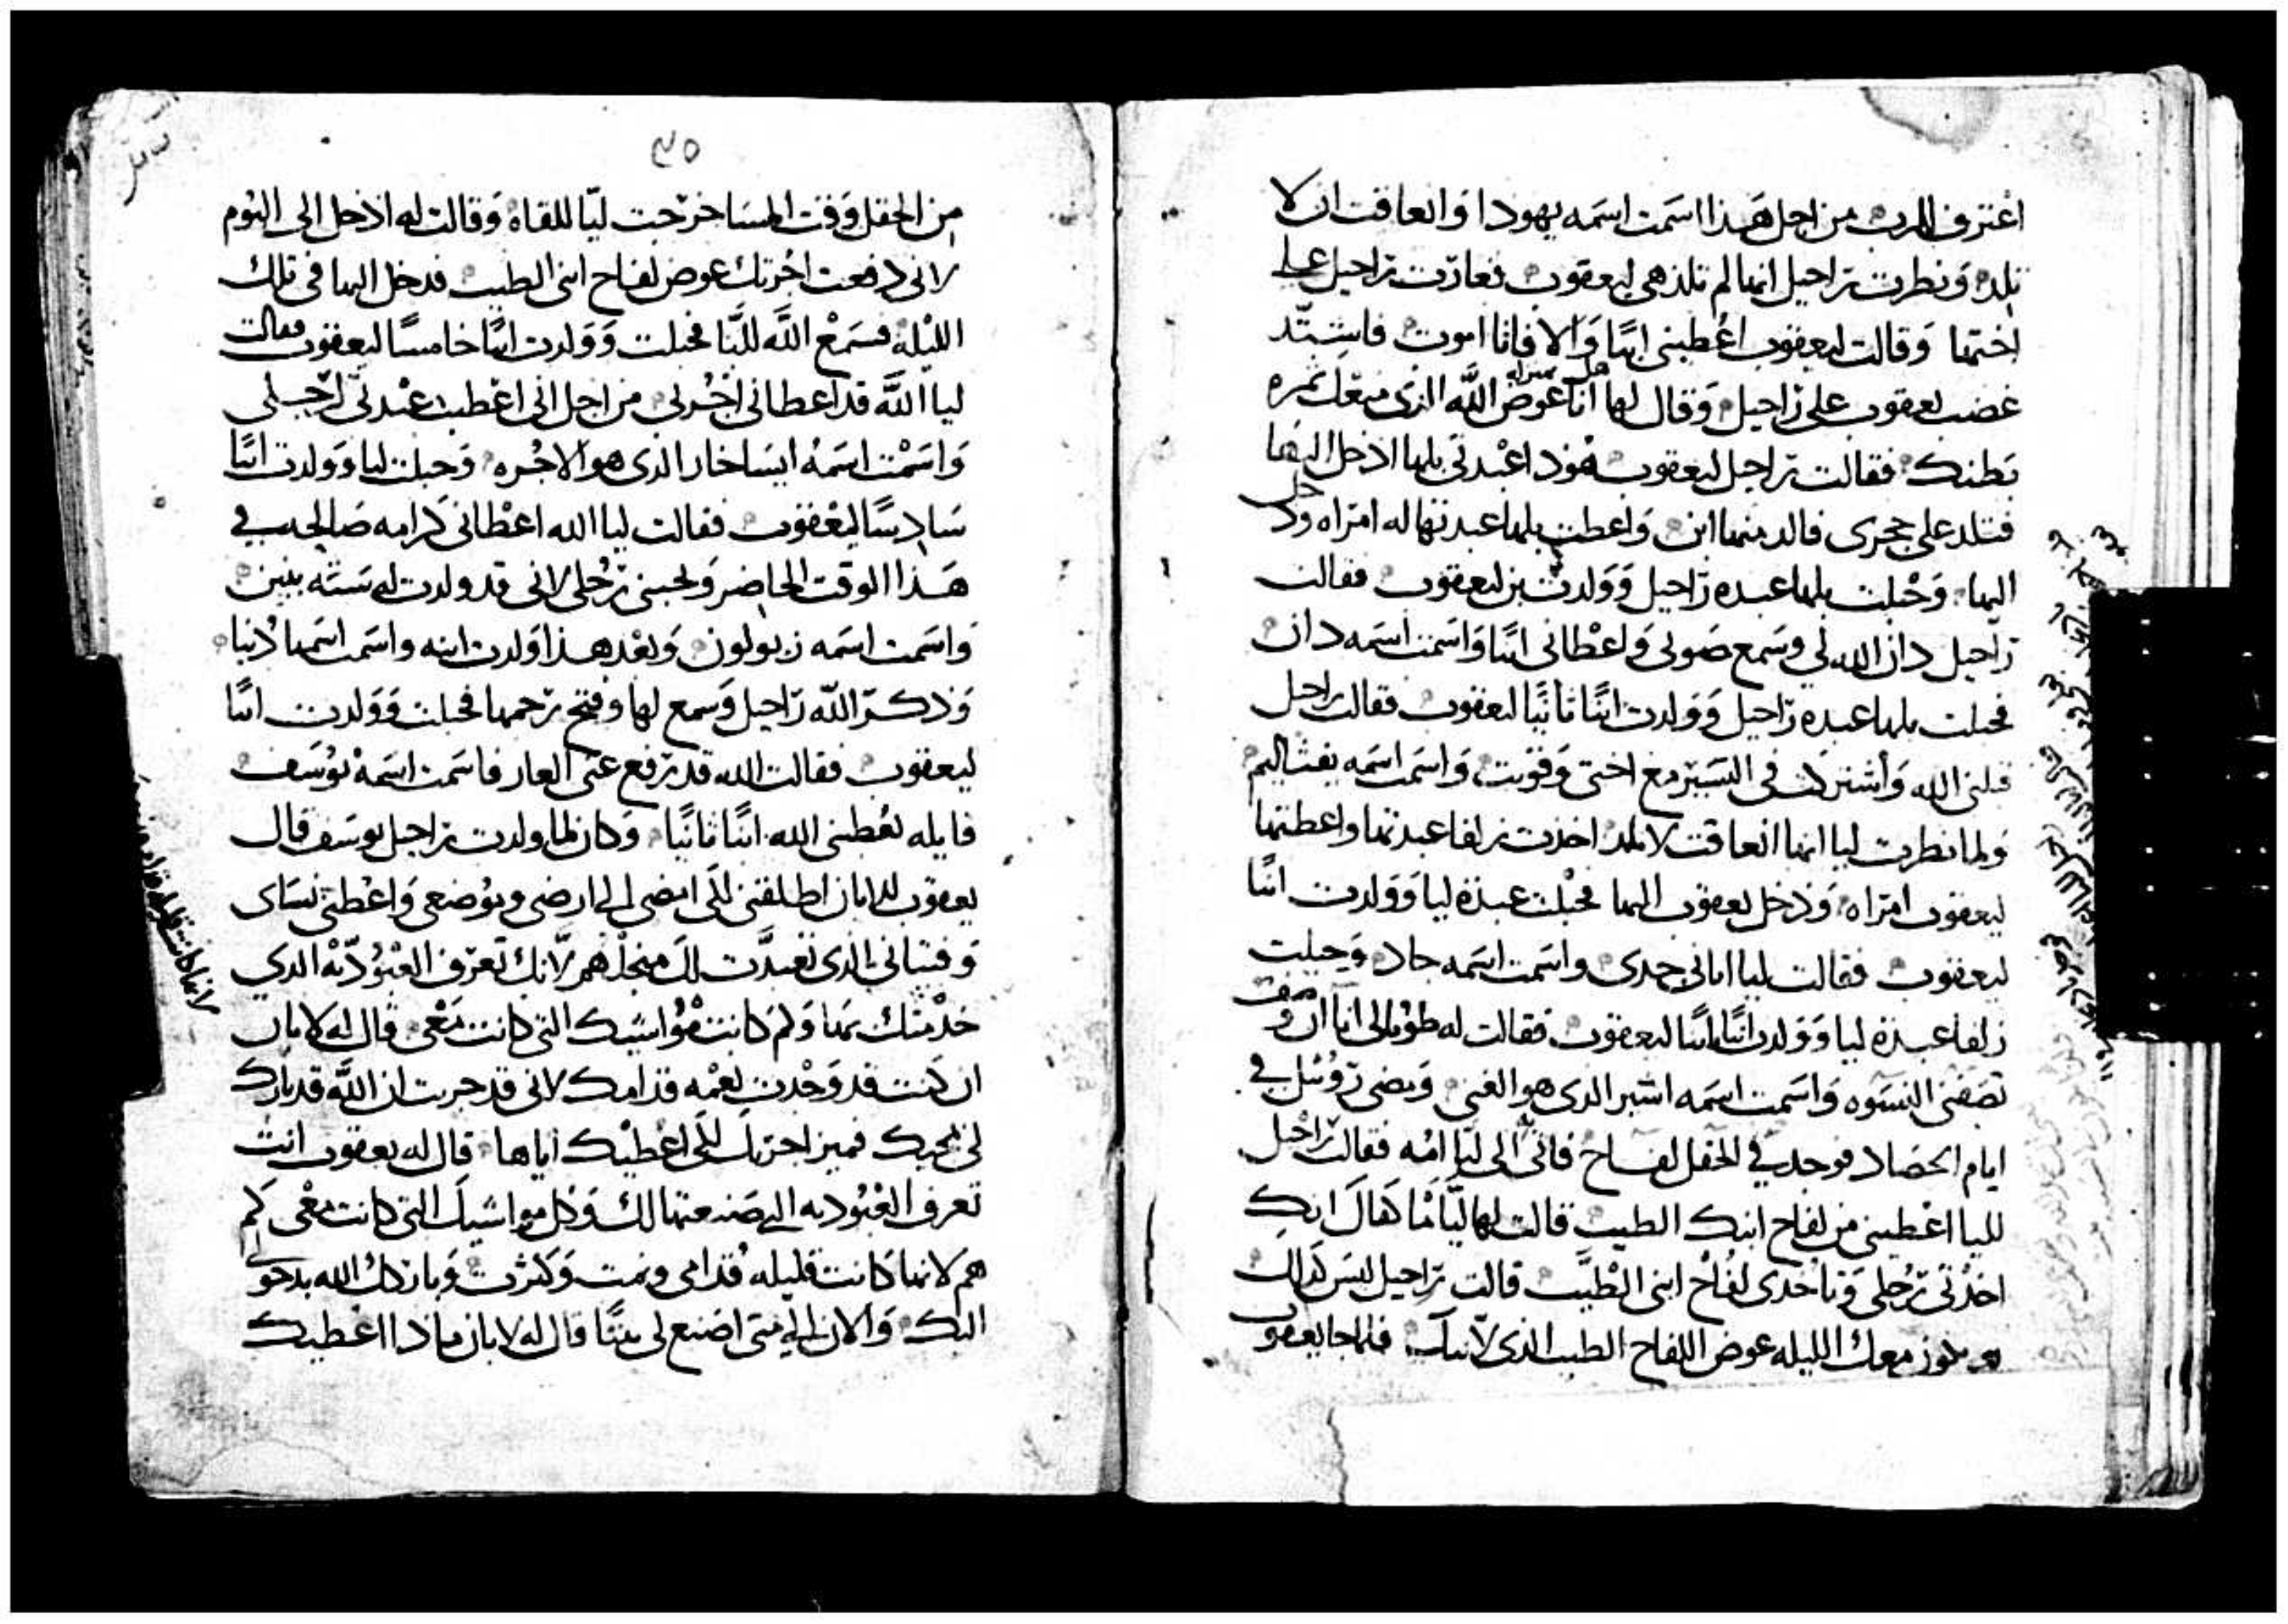 اعترف للرب من اجل هذا اسمت اسمه يهودا وانعاقت ان لا
تلد ونظرت راحيل انها لم تلد هي ليعقوب فغارت راحيل على
اختها وقالت ليعقوب اعطيني ابنًا والا فانا اموت فاشتد
غضب يعقوب على راحيل وقال لها انا عوض الله الذي منعك ثمره
بطنك فقالت راحيل ليعقوب هوذا عبدتي بلها ادخل اليها
فتلد على حجري فالد منها ابن واعطت بلها عبدتها له امراه ودخل
اليها وحبلت بلها عبده راحيل وولدت بن ليعقوب فقالت
راحيل دان الله لي وسمع صوتي واعطاني ابنًا واسمت اسمه دان
فحبلت بلها عبده راحيل وولدت ابنًا ثانيًا ليعقوب فقالت راحيل
قبلني الله واشتركت في السير مع اختي وقويت واسمت اسمه يفثاليم
ولما نظرت ليا انها انعاقت لا تلد اخذت زلفا عبدتها واعطتها
ليعقوب امراه ودخل يعقوب اليها فحبلت عبدة ليا وولدت ابنًا
ليعقوب فقالت ليا اتاني جدي واسمت اسمه جاد وحبلت
زلفا عبدة ليا وولدت ابنًا ثانيًا ليعقوب فقالت له طوبى لي انا ان
تصفني النسوه واسمت اسمه اشير الذي هو الغنى ومضى روئيل في
ايام الحصاد فوجد في الحقل لفاح فاتى الى ليا امه فقالت راحيل
لليا اعطيني من لفاح ابنك الطيب قالت لها ليا اما كفاك انك
اخذتي رجلي وتاخذي لفاح ابني الطيب قالت راحيل ليس كذلك
معك الليله عوض اللفاح الطيب الذي لابنك فلما جا يعقوب
٩٥
من الحقل وقت المسا خرجت ليا للقاه وقالت له ادخل الي اليوم
لاني دفعت اجرتك عوض لفاح ابني الطيب فدخل اليها في تلك
الليله فسمع الله لليا فحبلت وولدت ابنًا خامسًا ليعقوب فقالت
ليا الله قد اعطاني اجرتي من اجل اني اعطيت عبدتي لرجلي
واسمت اسمه ايساخار الذي هو الاجره وحبلت ليا وولدت ابنًا
سادسًا ليعقوب فقالت ليا الله اعطاني كرامه صالحه في
هذا الوقت الحاضر ويحبني رجلي لاني قد ولدت له سته بنين
واسمت اسمه زبولون وبعد هذا ولدت ابنه واسمت اسمها دنيا
وذكر الله راحيل وسمع لها وفتح رحمها فحبلت وولدت ابنًا
ليعقوب فقالت الله قد رفع عني العار فاسمت اسمه يوسف
قايله يعطيني الله ابنًا ثانيًا وكان لما ولدت راحيل يوسف قال
يعقوب للابان اطلقني لكي امضي الى ارضي وموضعي واعطني نساي
وفتياتي الذي تعبدت لك من اجلهم لانك تعرف العبوديه الذي
خدمتك بها ولم كانت مواشيك التي كانت معي قال له لابان
ان كنت قد وجدت نعمه قدامك لاني قد جربت ان الله قد بارك
لي بمجيك فميز اجرتك لكي اعطيك اياها قال له يعقوب انت
تعرف العبوديه التي صنعتها لك وكل مواشيك التي كانت معي كم
هم لانها كانت قليله قدامي ونمت وكثرت وباركك الله بدخولي
اليك والان الى متى اصنع لي بيتًا قال له لابان ماذا اعطيك